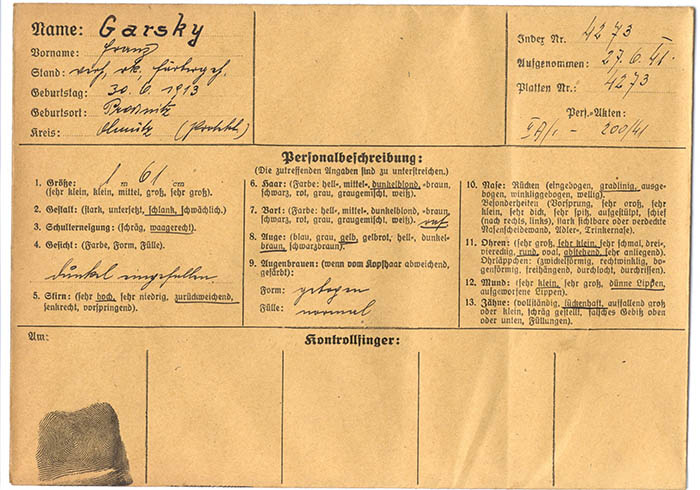 Name: Garsky
Vorname: Franz
Stand: verh. rk.
Geburtstag: 30. 6. 1913
Geburtsort: Prossnitz
Kreis: Olmütz
Index Nr. 4273
Aufgenommen: 27. 6. 41.
Platten Nr.: 4273
Pers.-Akten:
200/41
Personalbeschreibung:
(Die zutreffenden Angaben sind zu unterstreichen.)
1. Größe: 1 m 61 cm
(sehr klein, klein, mittel, groß, sehr groß).
2. Gestalt: (stark, untersetzt, schlank, schwächlich).
3. Schulterneigung: (schräg, waagerecht).
4. Gesicht: (Farbe, Form, Fülle).
dunkel eingefallen
5. Stirn: (sehr hoch, sehr niedrig, zurückweichend,
senkrecht, vorspringend).
6. Haar: (Farbe: hell-, mittel-, dunkelblond, -braun,
schwarz, rot, grau, graugemischt, weiß).
7. Bart: (Farbe: hell-, mittel-, dunkelblond, -braun,
schwarz, rot, grau, graugemischt, weiß).
8. Auge: (blau, grau, gelb, gelbrot, hell-, dunkel-
braun, schwarzbraun).
9. Augenbrauen: (wenn vom Kopfhaar abweichend,
gefärbt):
Form: gebogen
Fülle: normal
10. Nase: Rücken (eingebogen, gradlinig, ausge-
bogen, winkliggebogen, wellig).
Besonderheiten (Vorsprung, sehr groß, sehr
klein, sehr dick, sehr spitz, aufgestülpt, schief
(nach rechts, links), stark sichtbare oder verdeckte
Nasenscheidewand, Adler-, Trinkernase).
11. Ohren: (sehr groß, sehr klein, sehr schmal, drei-,
viereckig, rund, oval, abstehend, sehr anliegend).
Ohrläppchen: (zwickelförmig, rechtwinklig, bo-
genförmig, freihängend, durchlocht, durchrissen).
12. Mund: (sehr klein, sehr groß, dünne Lippen,
aufgeworfene Lippen).
13. Zähne: (vollständig, lückenhaft, auffallend groß
oder klein, schräg gestellt, falsches Gebiß oben
oder unten, Füllungen).
Am:
Kontrollfinger: